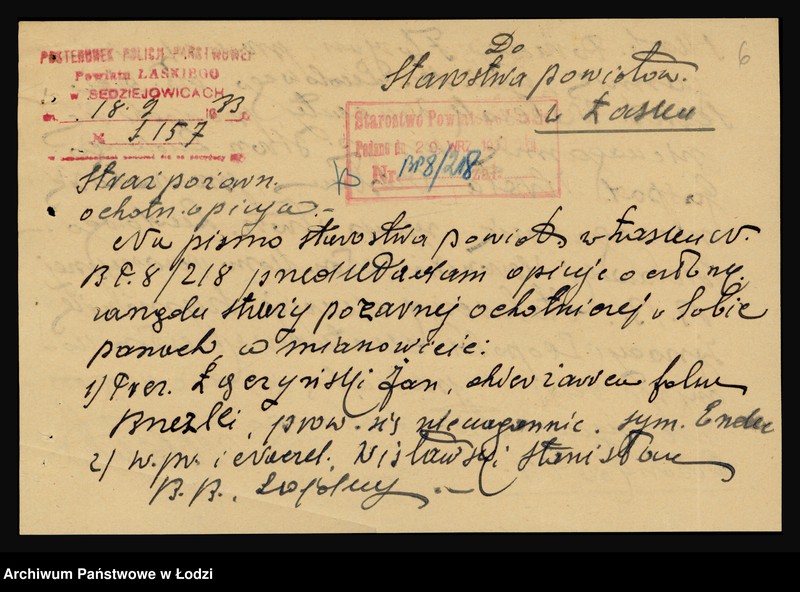 POSTERUNEK POLICJI PAŃSTWOWEJ
Powiatu ŁASKIEGO
w SĘDZIEJOWICACH
dn. 18.9 1933
№ 1157
6
Do
Starostwa powiatow.
w Łasku
Starostwo Powiatowe
Podano dn. 20 WRZ.
Nr. BP.8/218
Straż pożarn.
ochotn. opinja.-
Na pismo starostwa powiat. w Łasku N.
B.P.8/218 przedkładam opinję o człon.
zarządu straży pożarnej ochotniczej w Sobie
panach, a mianowicie:
1) Prez. Łączyński Jan, dzierżawca folw.
Brzeski, prow. się nienagannie, sym. Endec
2) w.pr. i Naczel. Wisławski Stanisław
B.B., Lojalny.-
Archiwum Państwowe w Łodzi